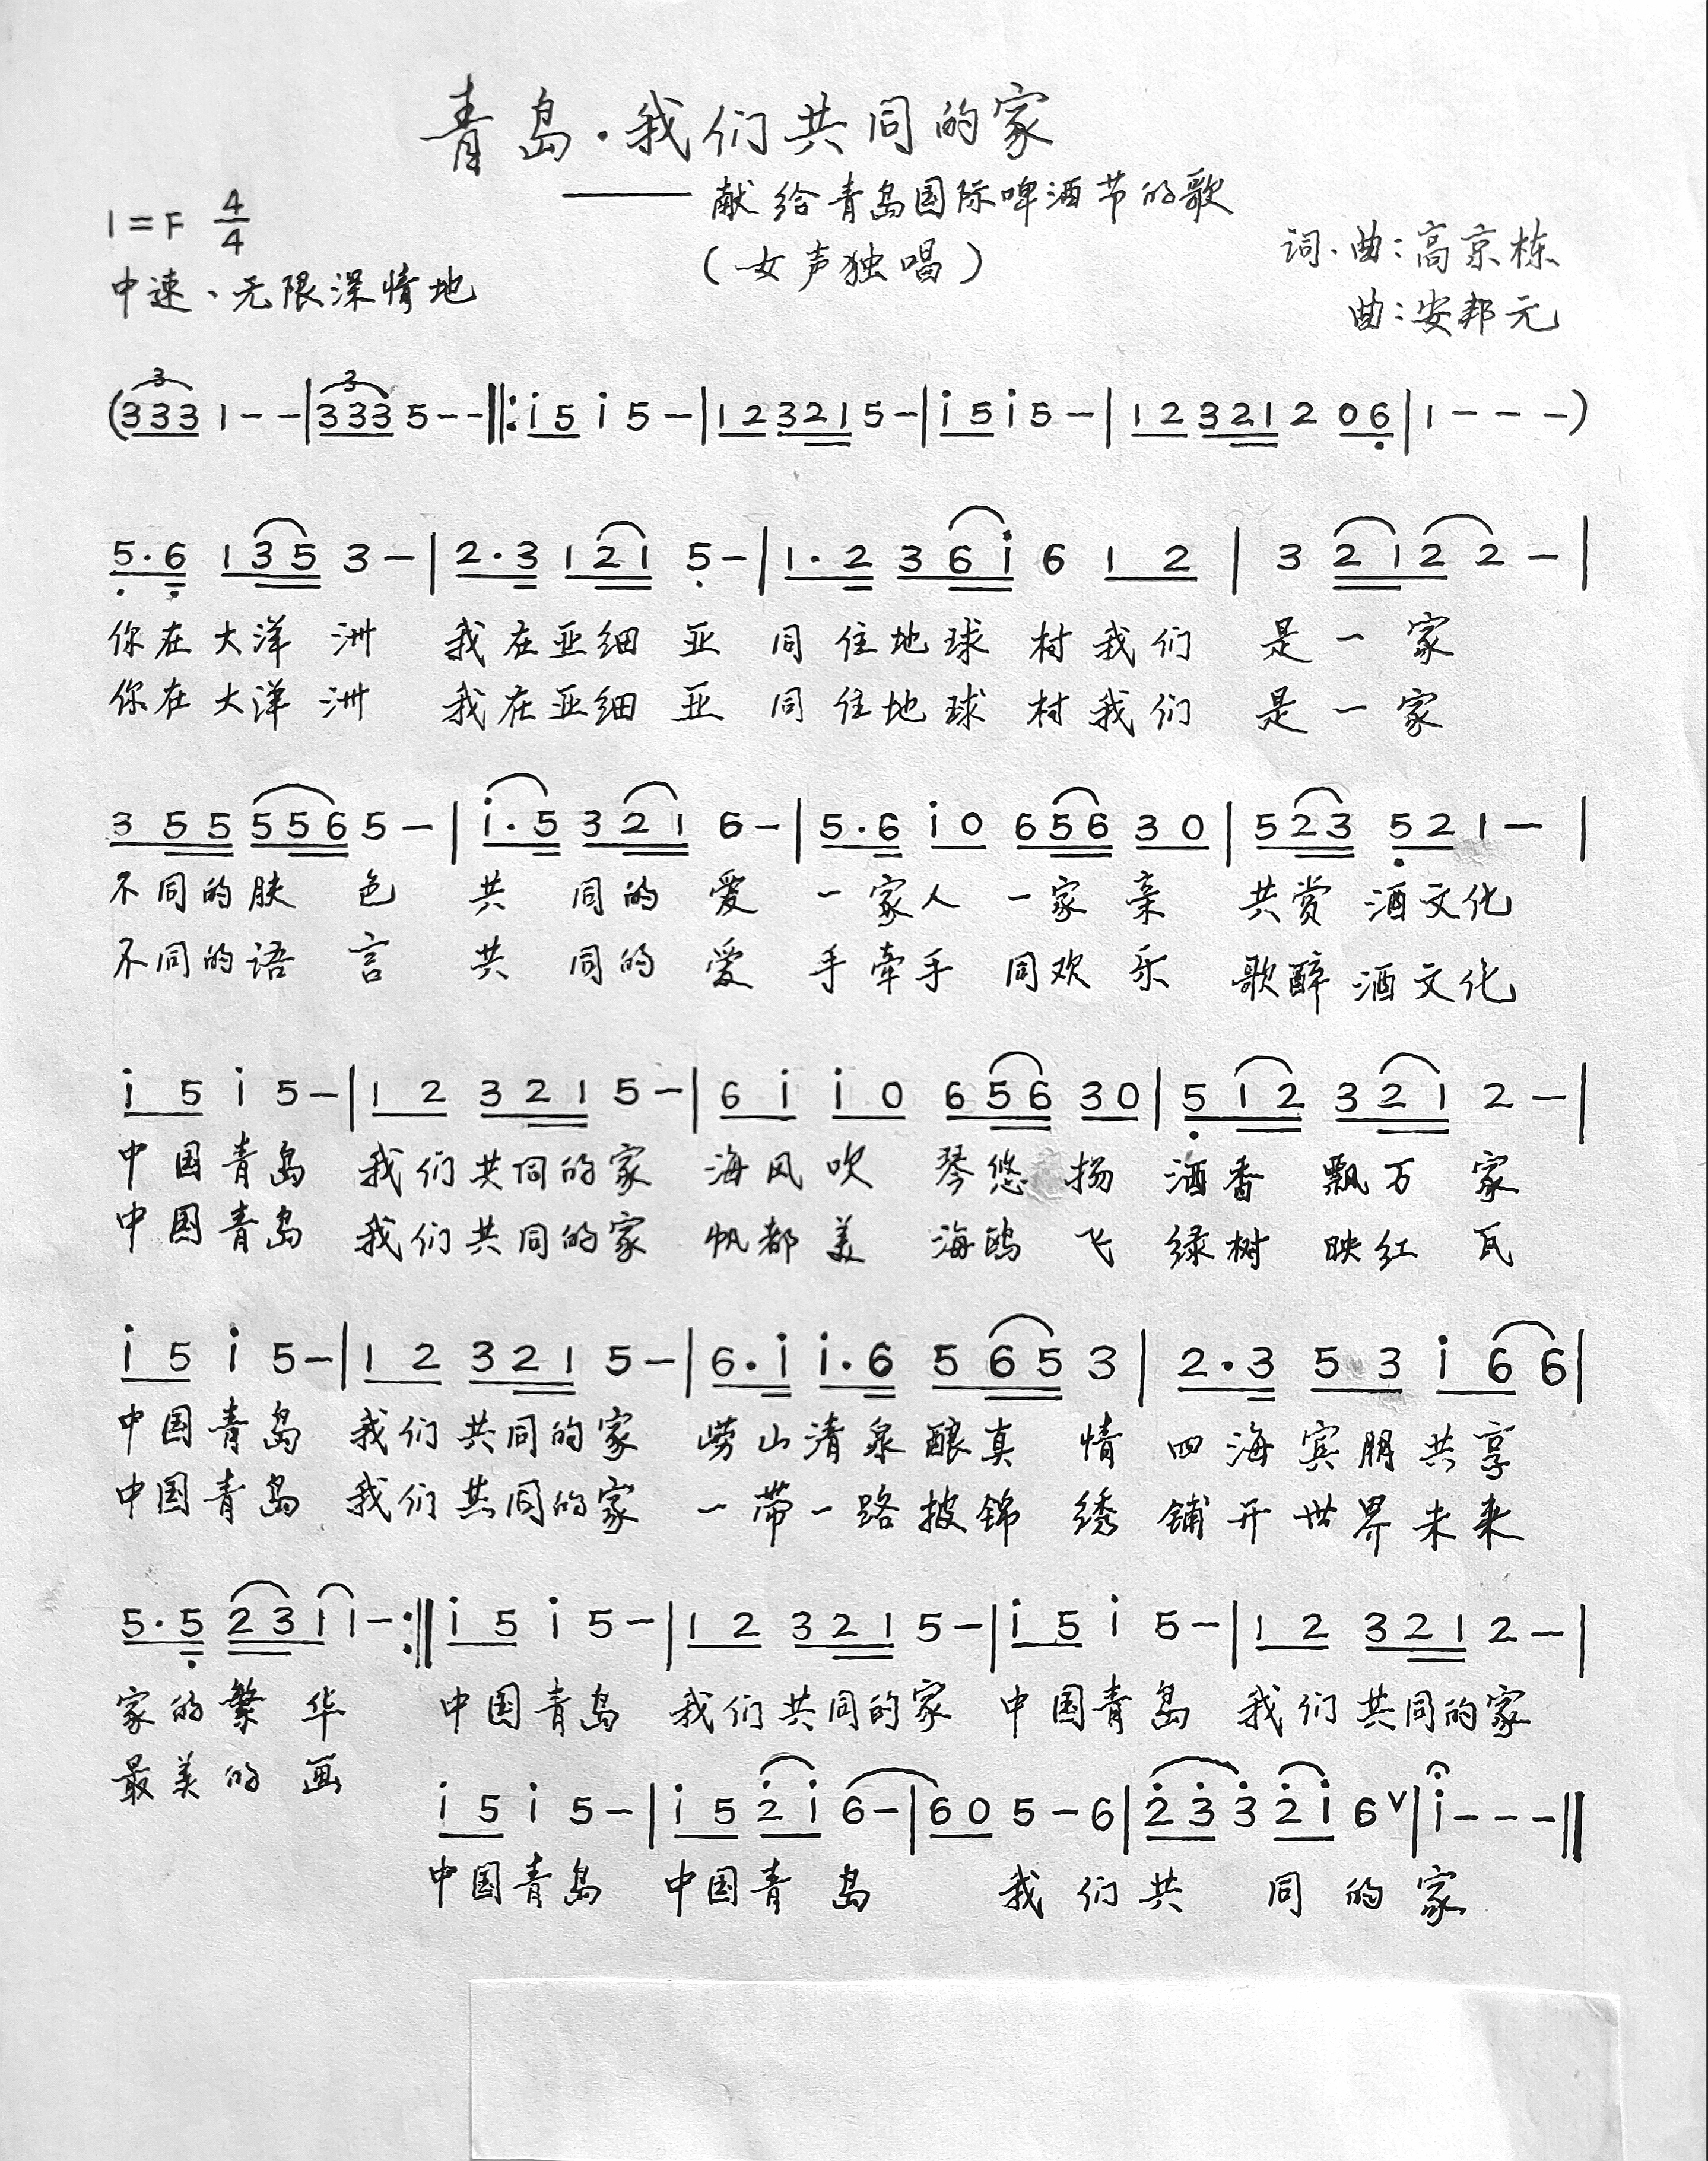 青岛·我们共同的家
——献给青岛国际啤酒节的歌
1=F 4/4
(女声独唱)
词、曲:高京栋
中速、无限深情地
曲:安邦元
(333 1--|333 5--‖:i5 i 5-|12 321 5-|i5 i 5-|12 321 2 06|1---)
5·6 135 3-|2·3 121 5-|1·2 36i 6 12|3 2122-|
你在大洋洲 我在亚细亚 同住地球村我们是一家
你在大洋洲 我在亚细亚 同住地球村我们是一家
355 556 5-|i·5 321 6-|5·6 i0 656 30|523 521-|
不同的肤色 共同的爱 一家人 一家亲 共赏酒文化
不同的语言 共同的爱 手牵手 同欢乐 歌醉酒文化
i5 i 5-|12 321 5-|6i i0 656 30|512 321 2-|
中国青岛 我们共同的家 海风吹 琴悠扬 酒香飘万家
中国青岛 我们共同的家 帆都美 海鸥飞 绿树映红瓦
i5 i 5-|12 321 5-|6·i i·6 565 3|2·3 53 i6 6|
中国青岛 我们共同的家 崂山清泉酿真情 四海宾朋共享
中国青岛 我们共同的家 一带一路披锦绣 铺开世界未来
5·5 2311-:‖i5 i 5-|12 321 5-|i5 i 5-|12 321 2-|
家的繁华 中国青岛 我们共同的家 中国青岛 我们共同的家
最美的画
i5 i 5-|i5 2i 6-|60 5-6|23 3 2i 6∨|i---‖
中国青岛 中国青岛 我们共同的家